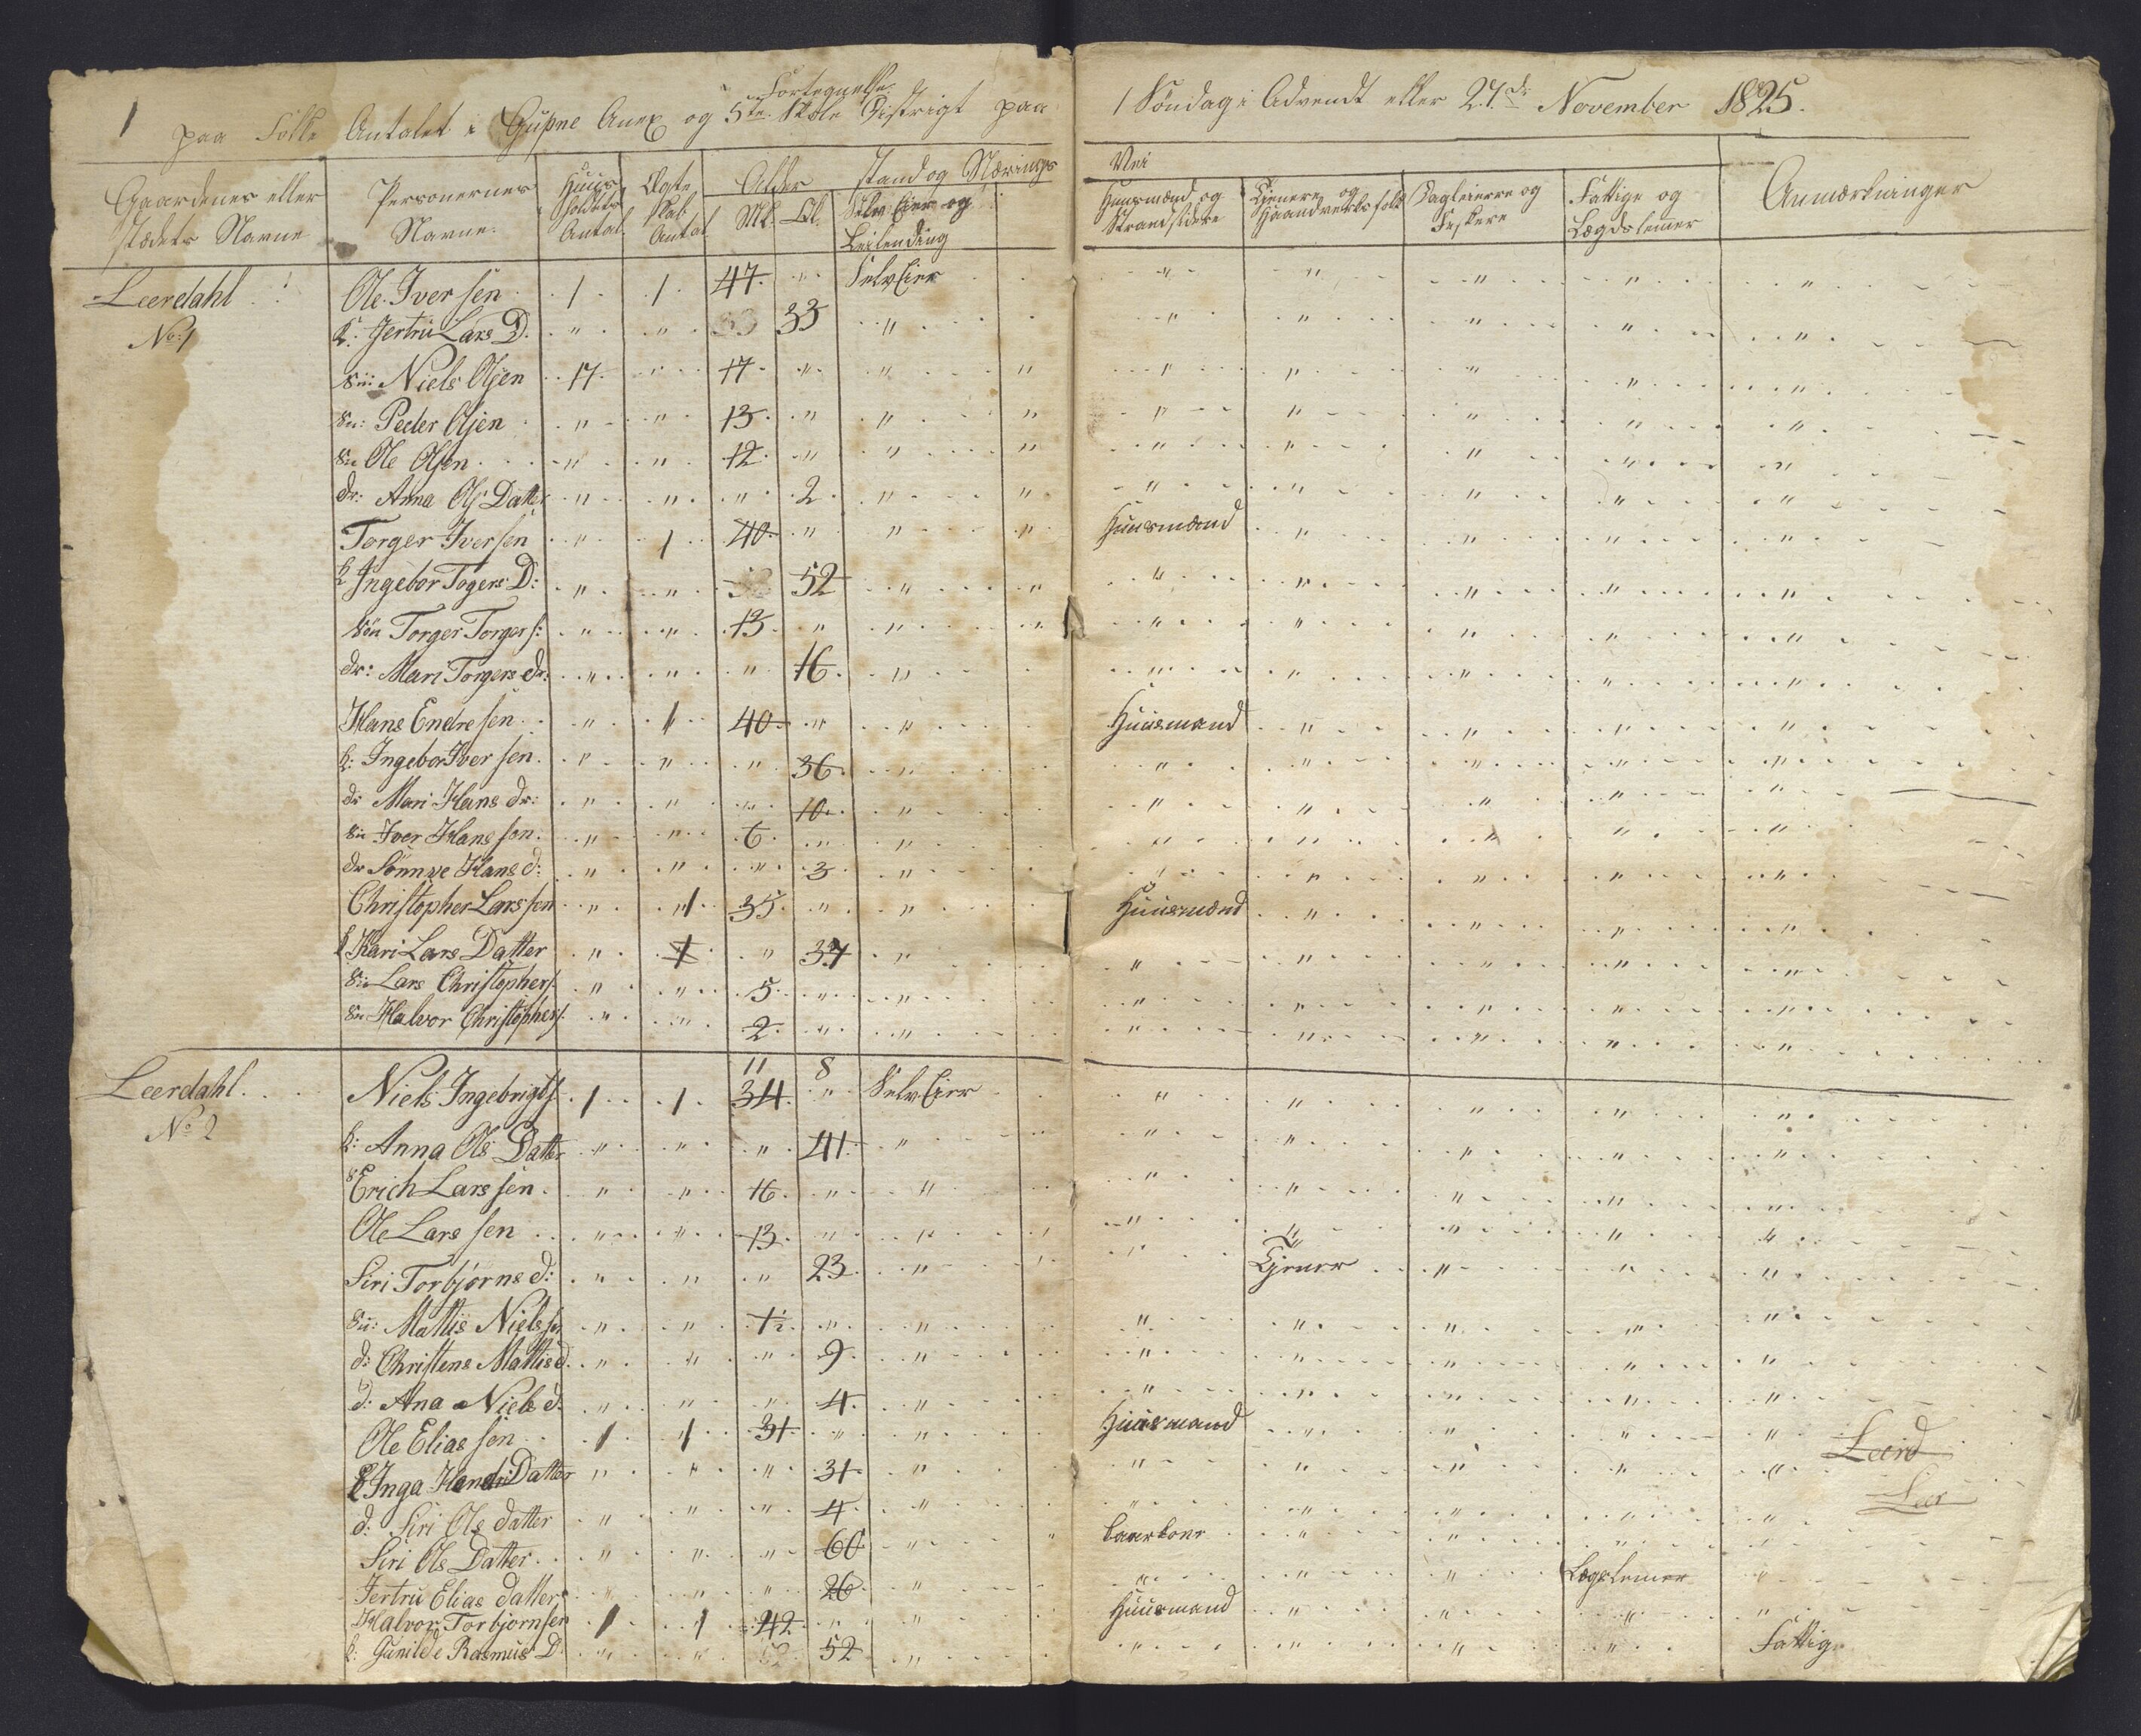 1 Fortegnelse
paa Folke Antalet i Gupne Anex og 5te Skole Distrigt paa 1 Søndag i Advendt eller 27de November 1825.
Gaardenes eller Stædets Navne | Personernes Navne. | Huus holdets Antal. | Ægte skab Antal | Alder Mk. Qk. | Stand og Nærings Vei | Selv Eier og Leilending | Huusmænd og Strandsidere | Tjenere og Haandverksfolk | Dagleiere og Fiskere | Fattige og Lægdslemmer | Anmærkninger
Leerdahl No. 1 | Ole Iversen | 1 | 1 | 47 | " | Selv Eier
k: Jertru Lars D. | " | " | 33 | 33 | "
Søn: Niels Olsen | 17 | " | 17 | " | "
Sn: Peder Olsen | " | " | 13 | " | "
Sn Ole Olsen | " | " | 12 | " | "
dr: Anna Ols Datter | " | " | " | 2 | "
Torger Iversen | " | 1 | 40 | " | " | Huusmand
k Ingebor Togers D: | " | " | 52 | "
Søn Torger Torgers: | " | " | 13 | " | "
dr: Mari Torgers dr: | " | " | " | 16 | "
Hans Endresen | " | 1 | 40 | " | " | Huusmand
k: Ingebor Iversen | " | " | " | 36 | "
dr Mari Hans dr: | " | " | " | 10 | "
Sn Iver Hanssen | " | " | 6 | " | "
dr Sønnve Hans d: | " | " | " | 3 | "
Christopher Larssen | " | 1 | 35 | " | " | Huusmand
k Kari Lars Datter | " | 1 | " | 34 | "
Sn Lars Christophers. | " | " | 5 | " | "
Sn Halvor Christophers. | " | " | 2 | " | "
11 | 8
Leerdahl No 2 | Niels Ingebrigts. | 1 | 1 | 34 | " | Selv Eier
k: Anna Ols Datter | " | " | " | 41 | "
s Erich Larssen | " | " | 16 | " | "
Ole Larssen | " | " | 13 | " | "
Siri Torbjørns d: | " | " | " | 23 | " | Tjener
Sn: Mattis Nielssen | " | " | 1½ | " | "
d: Christens Mattis d. | " | " | " | 9 | "
d: Ana Niels d: | " | " | " | 4 | "
Ole Eliassen | 1 | 1 | 31 | " | " | Huusmand
k Inga Hendri Datter | " | " | " | 31 | " | Leerd
d: Siri Ols datter | " | " | " | 4 | " | Leer
Siri Ols Datter | " | " | " | 60 | " | Kaarkone
Jertru Elias datter | " | " | " | 26 | " | Lægslemer
Halvor Torbjørnsen | 1 | 1 | 42 | " | " | Huusmand
k: Gunilde Rasmus D. | " | " | 52 | " | Fattig